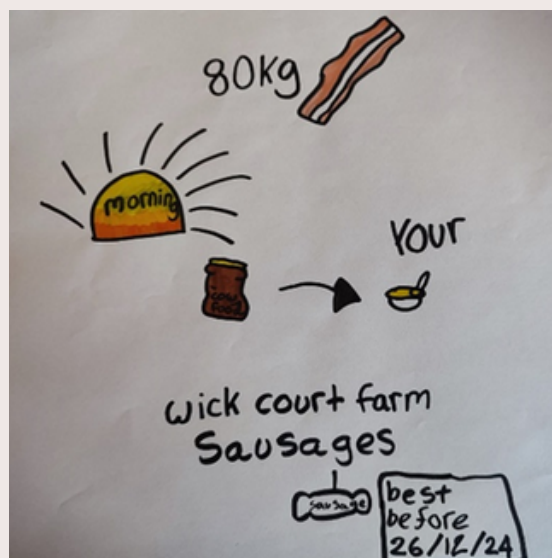 80kg
morning
Your
cow
food
wick court farm
Sausages
sausage
best
before
26/12/24